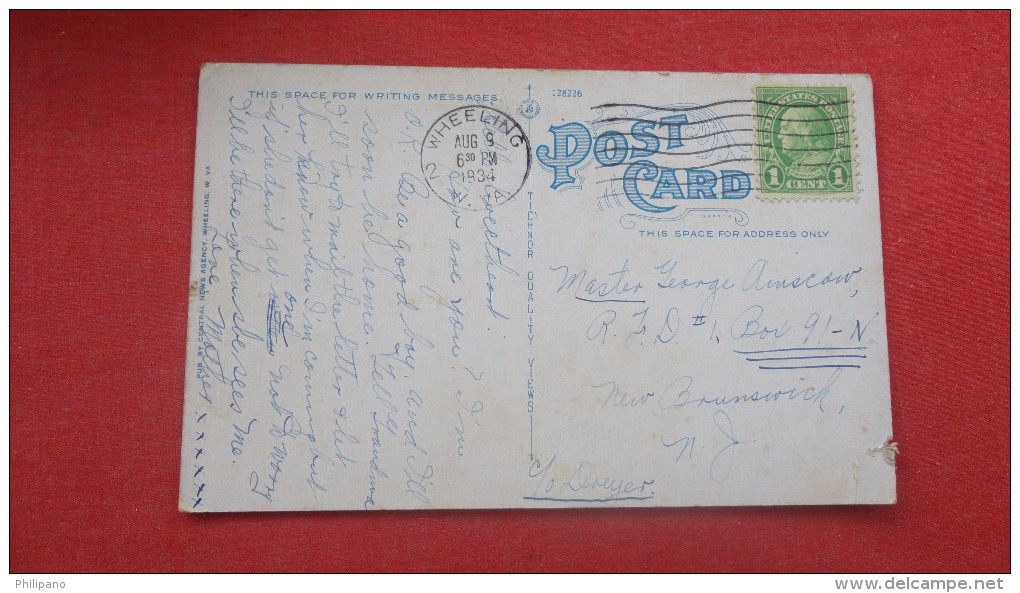 THIS SPACE FOR WRITING MESSAGES
Hello Sweetheart.
How are you? I'm
O.K. Be a good boy, and I'll
soon be home. Tell Grandma
I'll try to mail the letter & let
her know when I'm coming but
if she don't get one not to worry
I'll be there when she sees me.
Love Mother
x x x x x x
PUB. BY CENTRAL NEWS AGENCY, WHEELING, W. VA
TICHNOR QUALITY VIEWS
128226
WHEELING
AUG 9
6 30 PM
1934
2
POST CARD
THIS SPACE FOR ADDRESS ONLY
UNITED STATES POSTAGE
1 CENT 1
Master George Ainscow,
R.F.D #1, Box 91-N
New Brunswick,
N. J.
c/o Dreyer.
Philipano
www.delcampe.net